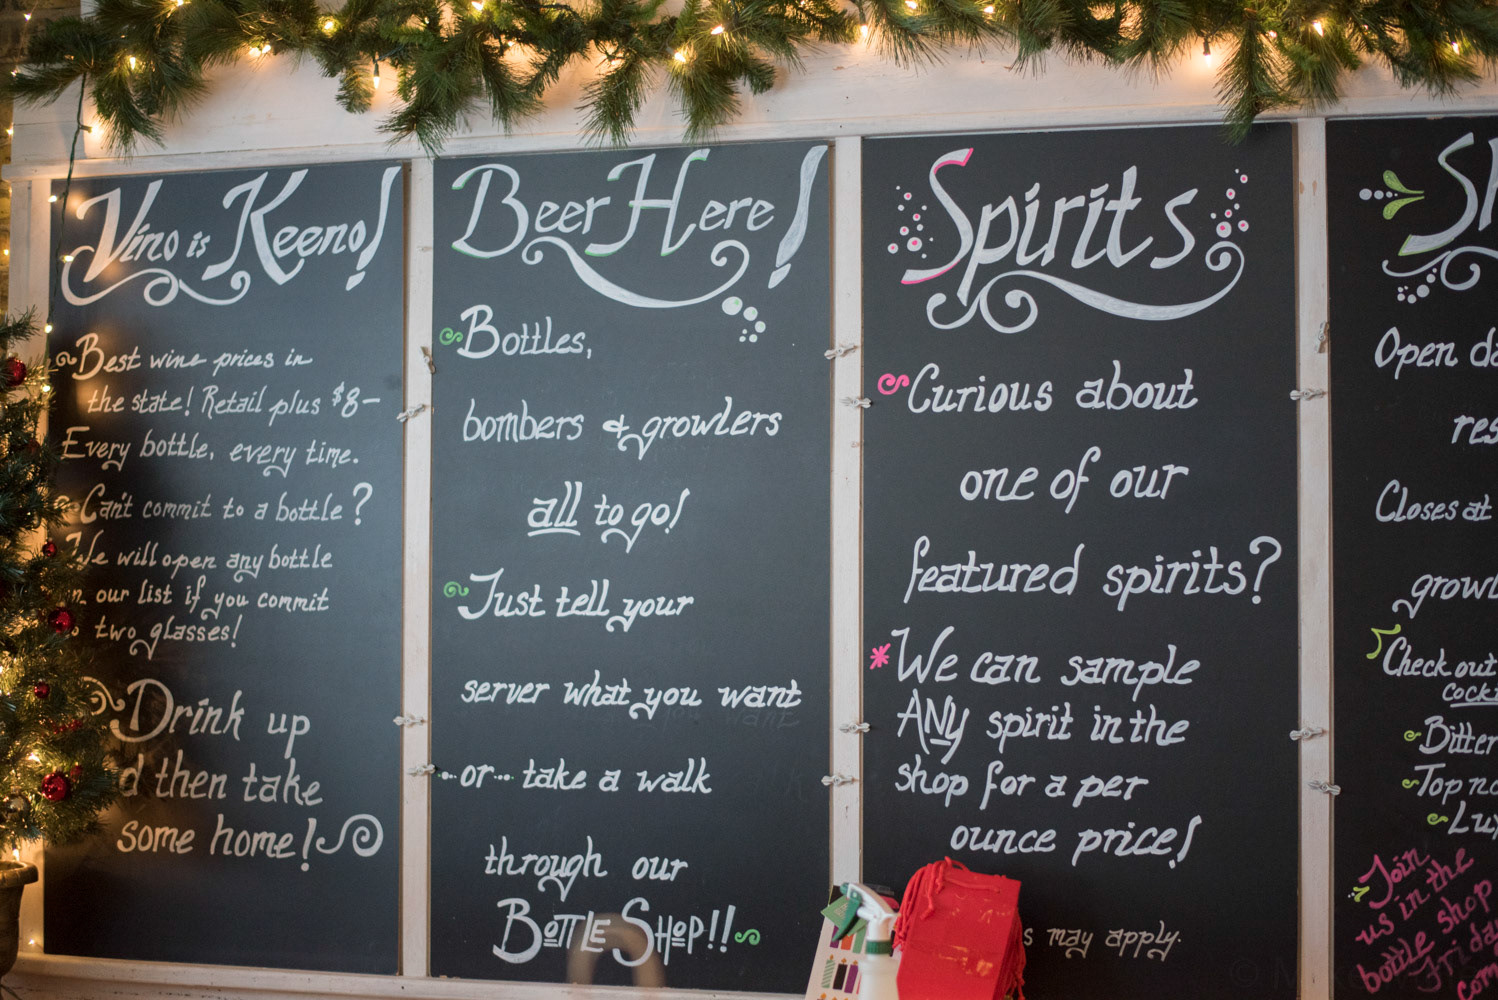 Vino is Keeno!
Best wine prices in
the state! Retail plus $8-
Every bottle, every time.
Can't commit to a bottle?
We will open any bottle
our list if you commit
two glasses!
Drink up
then take
some home!
Beer Here!
Bottles,
bombers & growlers
all to go!
Just tell your
server what you want
...or... take a walk
through our
Bottle Shop!!
Spirits
Curious about
one of our
featured spirits?
*We can sample
ANY spirit in the
shop for a per
ounce price!
may apply.
Open
Closes at
Check out
Join
us in the
bottle shop